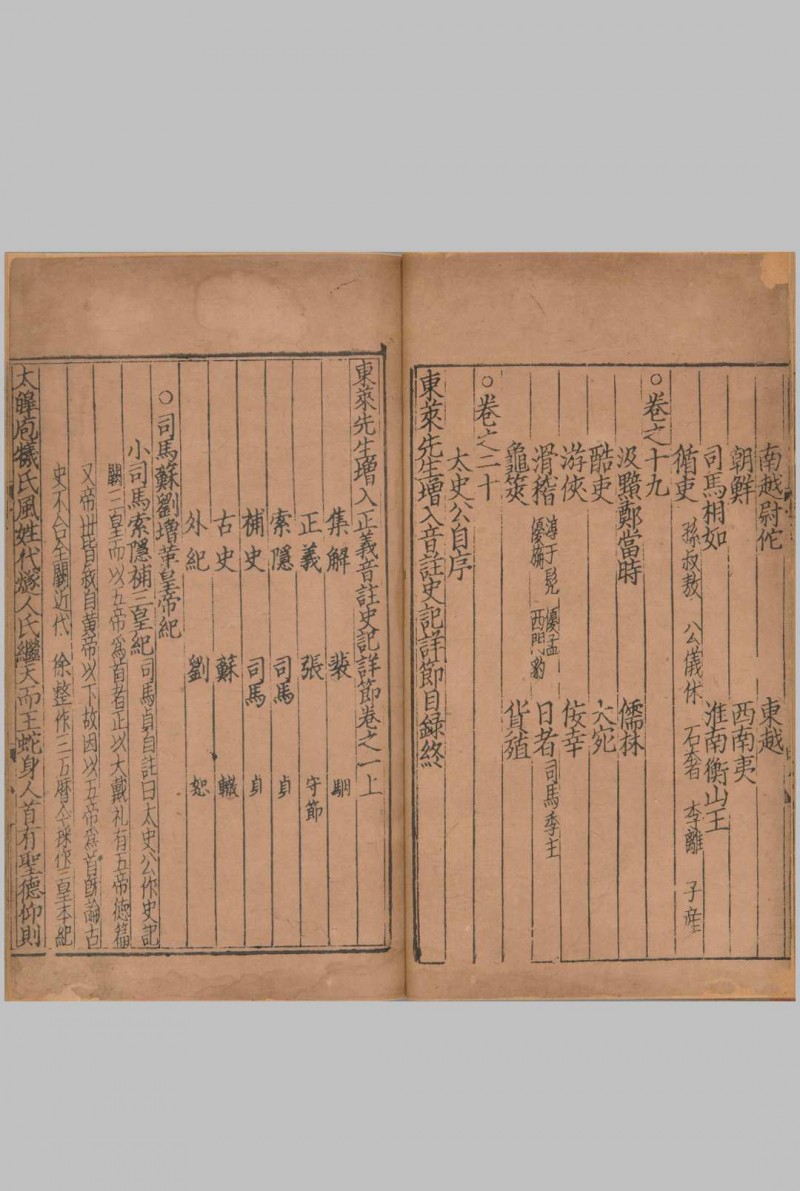 南越尉佗 東越
朝鮮 西南夷
司馬相如 淮南衡山王
循吏 孫叔敖 公儀休 石奢 李離 子産
○卷之十九
汲黯鄭當時 儒林
酷吏 大宛
游俠 佞幸
滑稽 淳于髡 優孟 優旃 西門豹 日者 司馬季主
龜筴 貨殖
○卷之二十
太史公自序
東萊先生增入音註史記詳節目録終
東萊先生增入正義音註史記詳節卷之一上
集解 裴 駰
正義 張 守節
索隱 司馬 貞
補史 司馬 貞
古史 蘇 轍
外紀 劉 恕
○司馬蘇劉增革皇帝紀
小司馬索隱補三皇紀 司馬貞自註曰太史公作史記
闕三皇而以五帝爲首者正以大戴礼有五帝德篇
又帝世皆叙自黄帝以下故因以五帝爲首 論古
史不合全闕近代 徐整作三五曆 作三皇本紀
太皥庖犧氏風姓代燧人氏繼天而王蛇身人首有聖德仰則